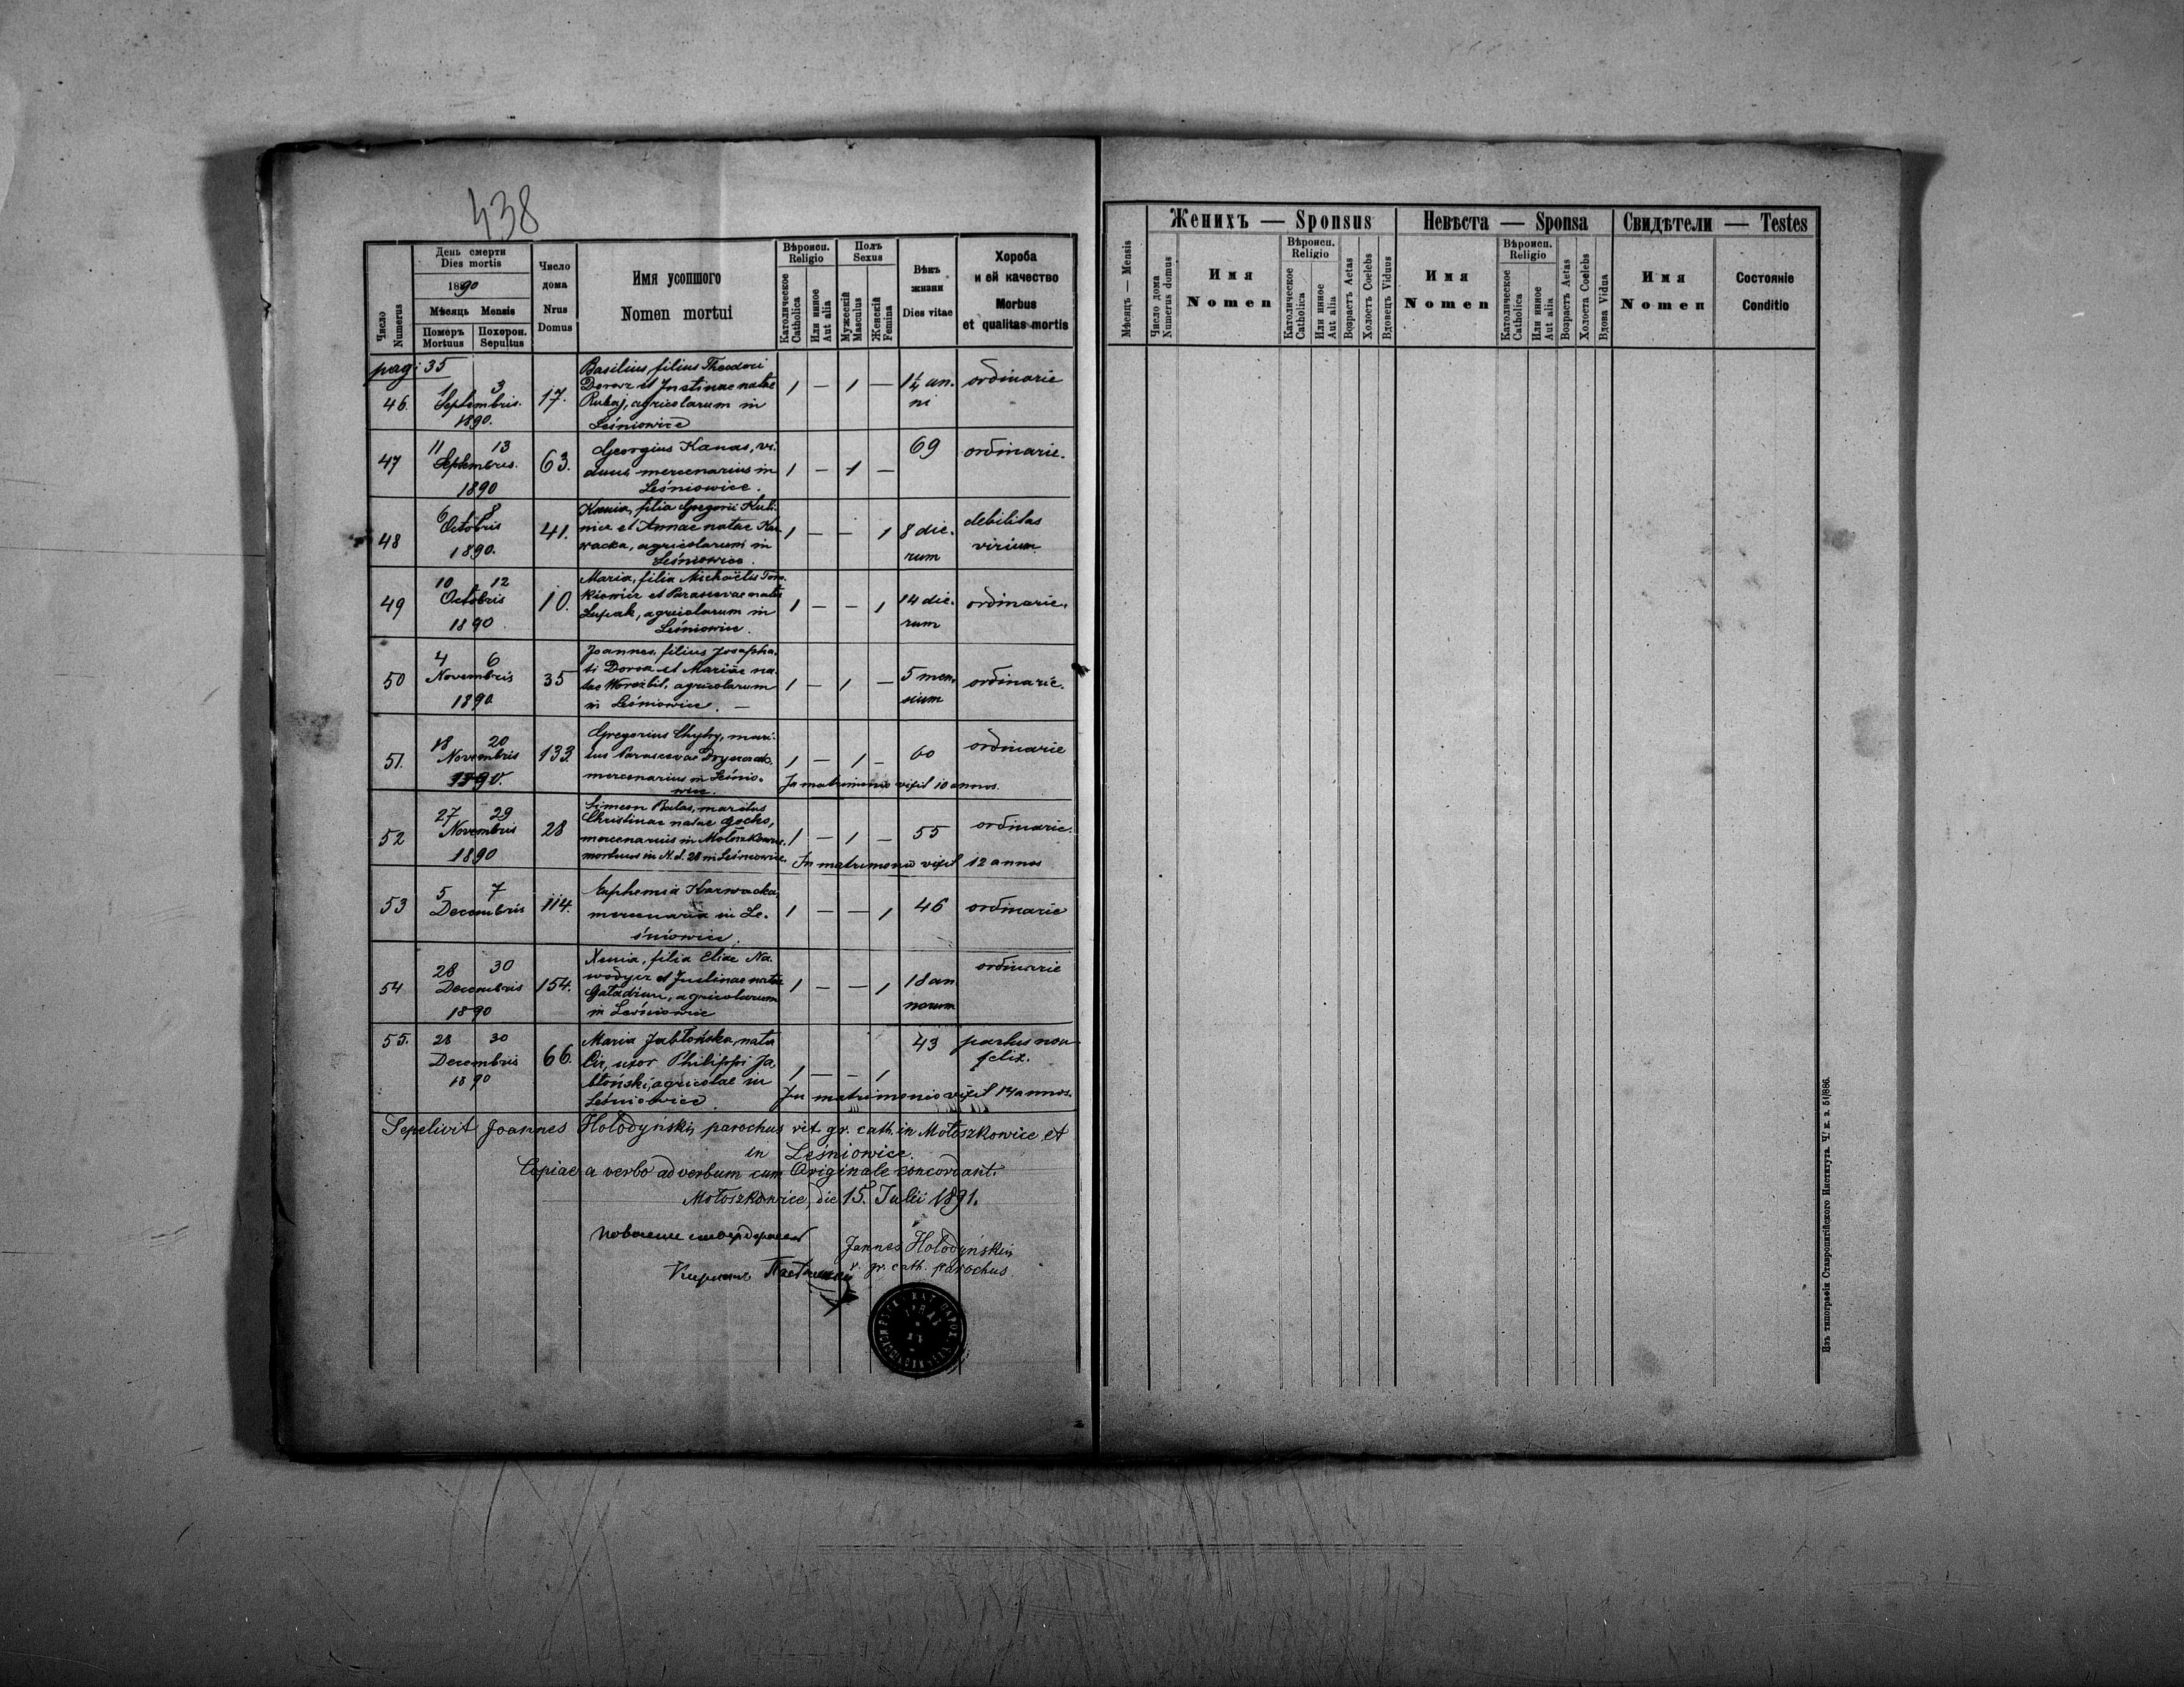 438
День смерти
Dies mortis
1890
Мѣсяць Mensis
Число
Numerus
Померъ
Mortuus
Похорон.
Sepultus
Число
дома
Nrus
Domus
Имя усопшого
Nomen mortui
Вѣроисп.
Religio
Католическое
Catholica
Или инное
Aut alia
Полъ
Sexus
Мужескій
Masculus
Женскій
Femina
Вѣкъ
жизни
Dies vitae
Хороба
и ей качество
Morbus
et qualitas mortis
pag: 35
46. 1 3 Septembris. 1890. 17.
Basilius, filius Theodori
Dorosz et Justinae natae
Rubaj, agricolarum in
Leśniowice
1 — 1 — 1¼ an.
ni
ordinarie
47 11 13 Septembris. 1890 63.
Georgius Kanas, vi.
duus mercenarius in
Leśniowice.
1 — 1 — 69 ordinarie.
48 6 8 Octobris 1890. 41.
Xenia, filia Gregorii
et Annae natae Kar
wacka, agricolarum in
Leśniowice.
1 — — 1 8 die.
rum
debilitas
virium
49 10 12 Octobris 1890. 10.
Maria, filia Michaëlis
et Parascevae natae
Lupak, agricolarum in
Leśniowice.
1 — — 1 14 die.
rum
ordinarie.
50 4 6 Novembris 1890. 35
Joannes, filius Josapha.
ti Dorosz et Mariae na.
tae Worożbit, agricolarum
in Leśniowice. —
1 — 1 — 5 men.
sium
ordinarie.
51. 18 20 Novembris 1890. 133.
Gregorius Chyhy, mari.
tus Parascevae
mercenarius in Leśnio.
wice.
1 — 1 — 60 ordinarie
In matrimonio vixit 10 annos.
52 27 29 Novembris 1890 28
Simeon Balas, maritus
Christinae natae Gocko,
mercenarius in Mołoszkowice.
mortuus in N. d. 28 in Leśniowice.
1 — 1 — 55 ordinarie.
In matrimonio vixit 12 annos
53 5 7 Decembris 114.
Euphemia Karwacka,
mercenaria in Le.
śniowice.
1 — — 1 46 ordinarie
54 28 30 Decembris 1890 154.
Xenia, filia Eliae Na.
wodycz et Julinae natae
agricolarum
in Leśniowice
1 — — 1 18 an
norum
ordinarie
55. 28 30 Decembris 1890 66.
Maria Jabłońska, nata
Cir, uxor Philippi Ja
błoński, agricolae in
Leśniowice.
1 — — 1 43 partus non
felix.
In matrimonio vixit 14 annos.
Sepelivit Joannes Hołodyński, parochus rit. gr. cath. in Mołoszkowice et
in Leśniowice.
Copiae a verbo ad verbum cum Originale concordant.
Mołoszkowice, die 15. Julii 1891.
Joannes Hołodyński,
r. gr. cath. parochus
Мѣсяцъ — Mensis
Число дома
Numerus domus
Женихъ — Sponsus
Имя
Nomen
Вѣроисп.
Religio
Католическое
Catholica
Или инное
Aut alia
Возрастъ Aetas
Холостъ Coelebs
Вдовецъ Viduus
Невѣста — Sponsa
Имя
Nomen
Вѣроисп.
Religio
Католическое
Catholica
Или инное
Aut alia
Возрастъ Aetas
Холоста Coelebs
Вдова Vidua
Свидѣтели — Testes
Имя
Nomen
Состояніе
Conditio
Изъ типографіи Ставропигійского Института. Ч. к. з. 51/886.